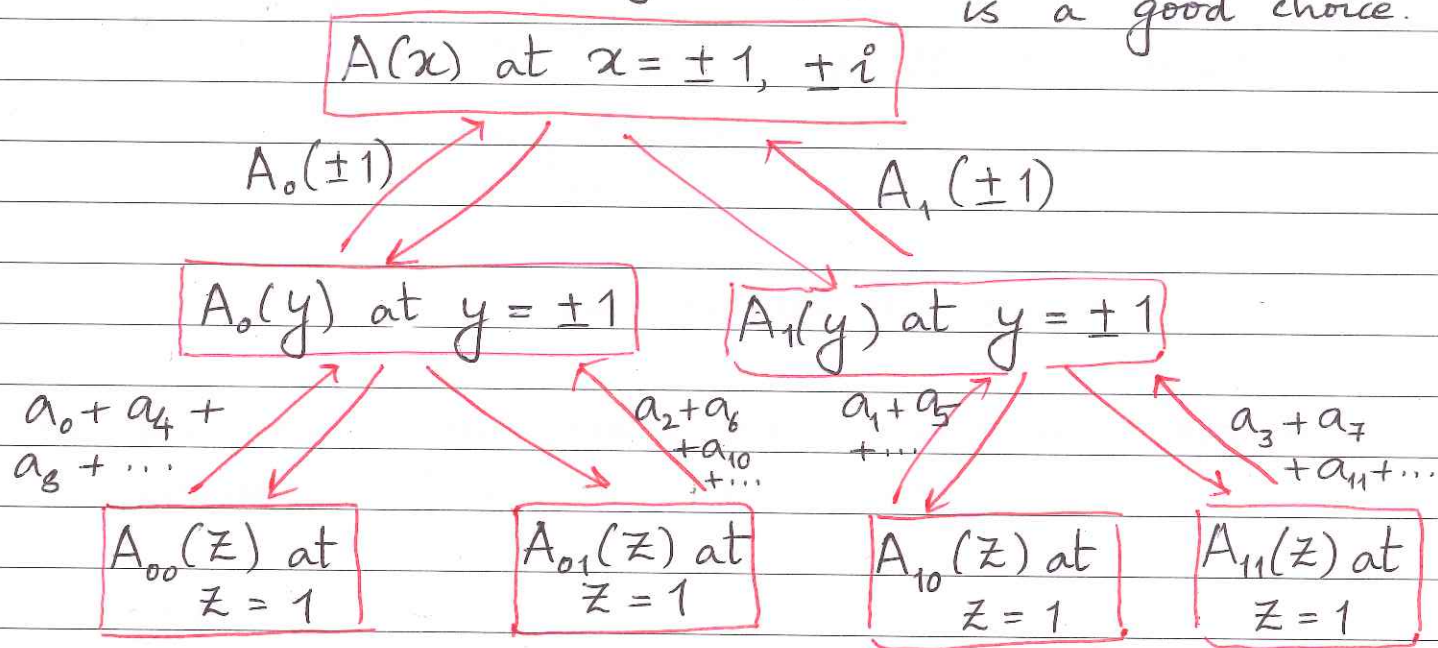 is a good choice.
A(x) at x = ±1, ±i
A₀(±1)
A₁(±1)
A₀(y) at y = ±1
A₁(y) at y = ±1
a₀ + a₄ +
a₈ + ...
a₂ + a₆
+ a₁₀
+ ...
a₁ + a₅
+ ...
a₃ + a₇
+ a₁₁ + ...
A₀₀(z) at
z = 1
A₀₁(z) at
z = 1
A₁₀(z) at
z = 1
A₁₁(z) at
z = 1